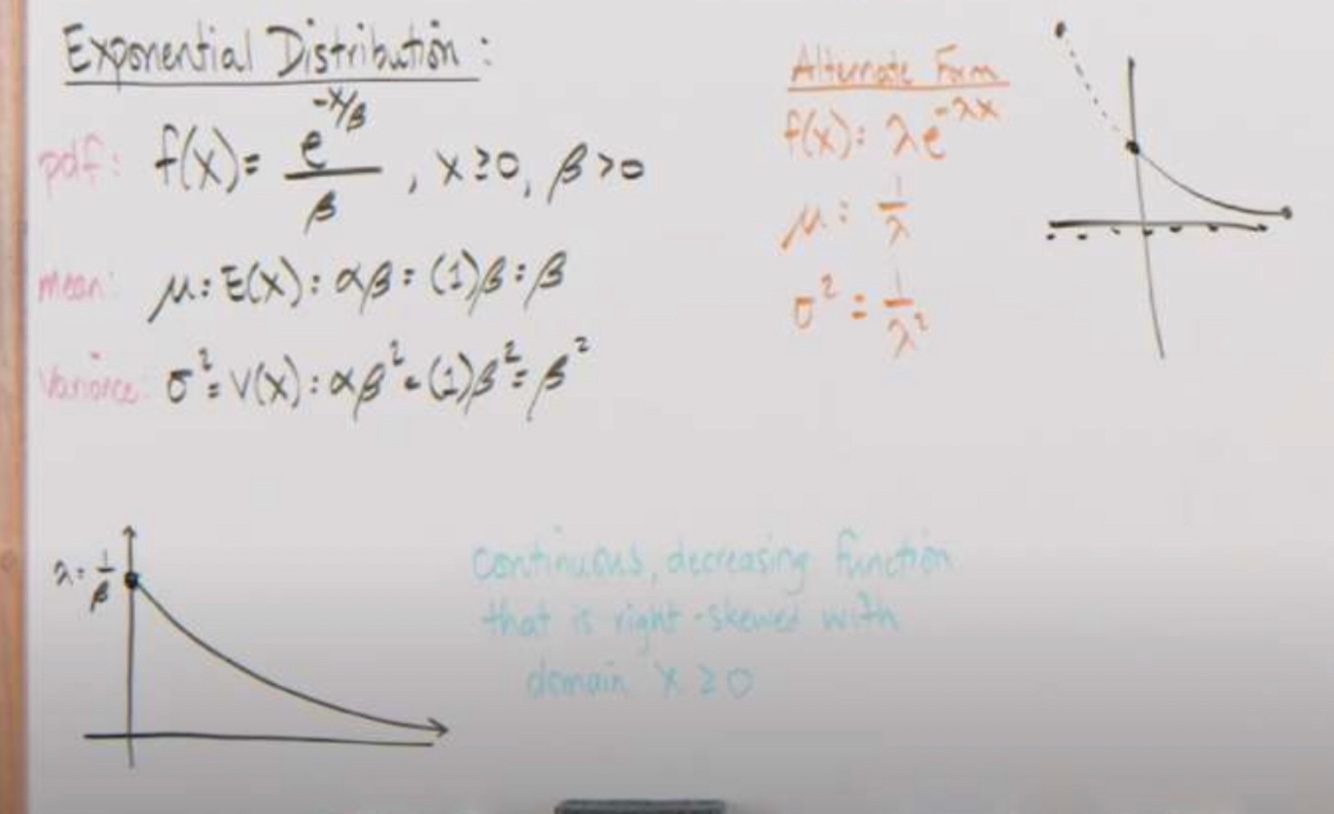 Exponential Distribution:
pdf: f(x) = e^(-x/β) / β , x ≥ 0, β > 0
mean: μ = E(X) = αβ = (1)β = β
Variance: σ² = V(X) = αβ² = (1)β² = β²
Alternate Form
f(x) = λe^(-λx)
μ = 1/λ
σ² = 1/λ²
λ = 1/β
Continuous, decreasing function
that is right-skewed with
domain x ≥ 0